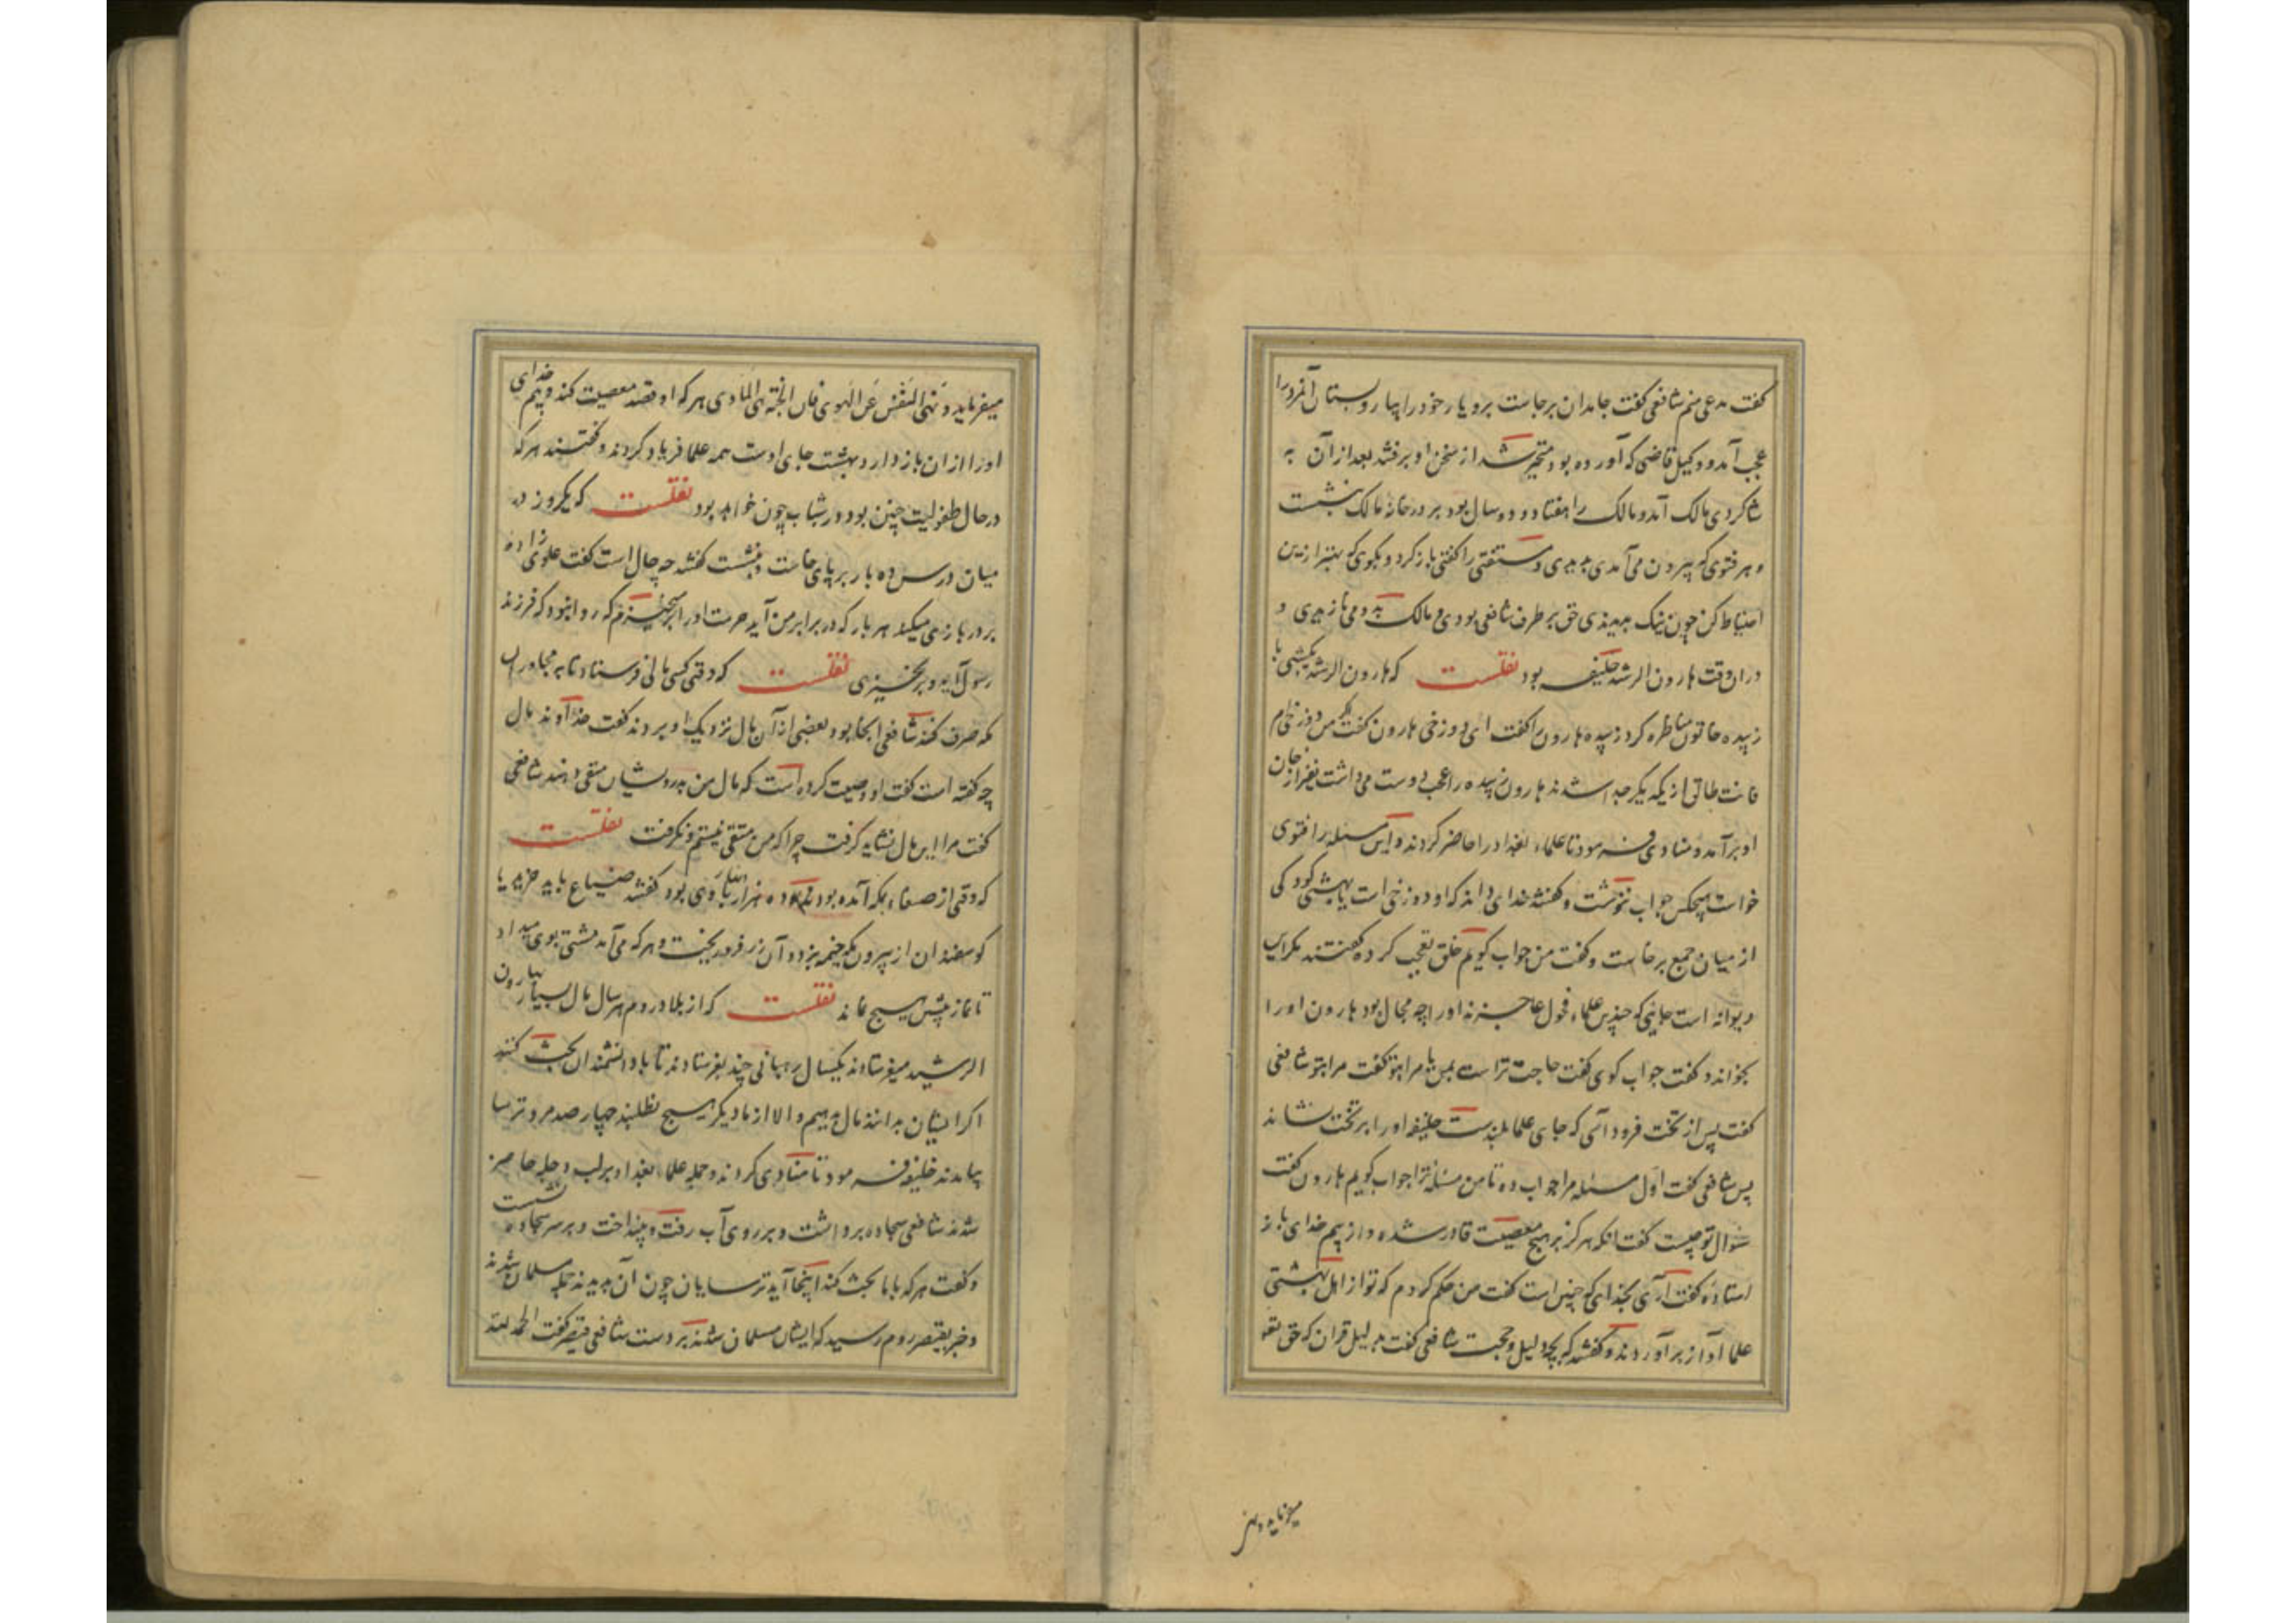 گفت مدعی منم شافعی گفت جامدان برجاست برو یار خود را بیار و بستان آنمرد را
عجب آمد و وکیل قاضی که آورده بود متحیر شد از سخن او برفتند بعد از آن به
شاکردی مالک آمد و مالک را هفتاد و دو سال بود بر در خانه مالک بنشست
و هر فتوی که بیرون می آمدی بدیدی و مستفتی را گفتی بازگرد و بگوی که بهتر ازین
احتیاط کن چون نیک بدیدی حق بر طرف شافعی بودی و مالک بدو می نازیدی و
دران وقت هارون الرشید خلیفه بود نقلست که هارون الرشید یکشبی با
زبیده خاتون مناظره کرد زبیده هارون را گفت ای دوزخی هارون گفت اگر من دوزخی ام
فانت طالق از یکدیگر جدا شدند هارون زبیده را عجب دوست می داشت نفیر از جان
او برآمد و منادی فرمود تا علماء بغداد را حاضر کردند و این مسئله را فتوی
خواست هیچکس جواب ننوشت و گفتند خدای داند که او دوزخی است یا بهشتی کودکی
از میان جمع برخاست و گفت من جواب گویم خلق تعجب کرده گفتند مگر این
دیوانه است جایی که چندین علماء فحول عاجزند او را چه مجال بود هارون او را
بخواند و گفت جواب گوی گفت حاجت تراست بمن یا مرا بتو گفت مرا بتو شافعی
گفت پس از تخت فرود آی که جای علما بلندست خلیفه او را بر تخت نشاند
پس شافعی گفت اول مسئله مرا جواب ده تا من مسئله ترا جواب گویم هارون گفت
سوال تو چیست گفت انکه هرگز بر هیچ معصیت قادر شده و از بیم خدای باز
استاده گفت آری بخدای که چنین است گفت من حکم کردم که تو از اهل بهشتی
علما آواز برآوردند و گفتند که بچه دلیل و حجت شافعی گفت بدلیل قران که حق تعا
میفرماید و نهی
میفرماید و نهی النفس عن الهوی فان الجنة هی الماوی هر که او قصد معصیت کند و بیم خدای
او را از ان باز دارد بهشت جای اوست همه علما فریاد کردند و گفتند هر که
در حال طفولیت چنین بود در شباب چون خواهد بود نقلست که یکروز در
میان درس ده بار بر پای خاست و بنشست گفتند چه حال است گفت علوی زاده
بر در بازی میکند هر بار که در برابر من آید حرمت او را برمیخیزم که روا نبود که فرزند
رسول آید و برنخیزی نقلست که وقتی کسی مالی فرستاد تا بر مجاوران
مکه صرف کنند شافعی انجا بود بعضی از آن مال نزدیک او بردند گفت خداوند مال
چه گفته است گفت او وصیت کرده است که مال من بدرویشان متقی دهند شافعی
گفت مرا این مال نشاید گرفت چرا که من متقی نیستم و نگرفت نقلست
که وقتی از صنعاء بمکه آمده بود و ده هزار دینار با وی بود گفتند ضیاع باید خرید یا
گوسفندان از بیرون مکه خیمه بزد و آن زر فرو ریخت و هر که می آمد مشتی بوی میداد
تا نماز پیشین هیچ نماند نقلست که از بلاد روم هر سال مال بسیار بهارون
الرشید میفرستادند یکسال رهبانی چند بفرستادند تا با دانشمندان بحث کنند
اگر ایشان بدانند مال بدهیم والا از ما دیگر هیچ نطلبند چهار صد مرد ترسا
بیامدند خلیفه فرمود تا منادی کردند و جمله علماء بغداد بر لب دجله حاضر
شدند شافعی سجاده برداشت و بر روی آب رفت و بینداخت و بر سر سجاده نشست
و گفت هر که با ما بحث کند اینجا آید ترسایان چون آن بدیدند جمله مسلمان شدند
و خبر بقیصر روم رسید که ایشان مسلمان شدند بر دست شافعی قیصر گفت الحمد لله